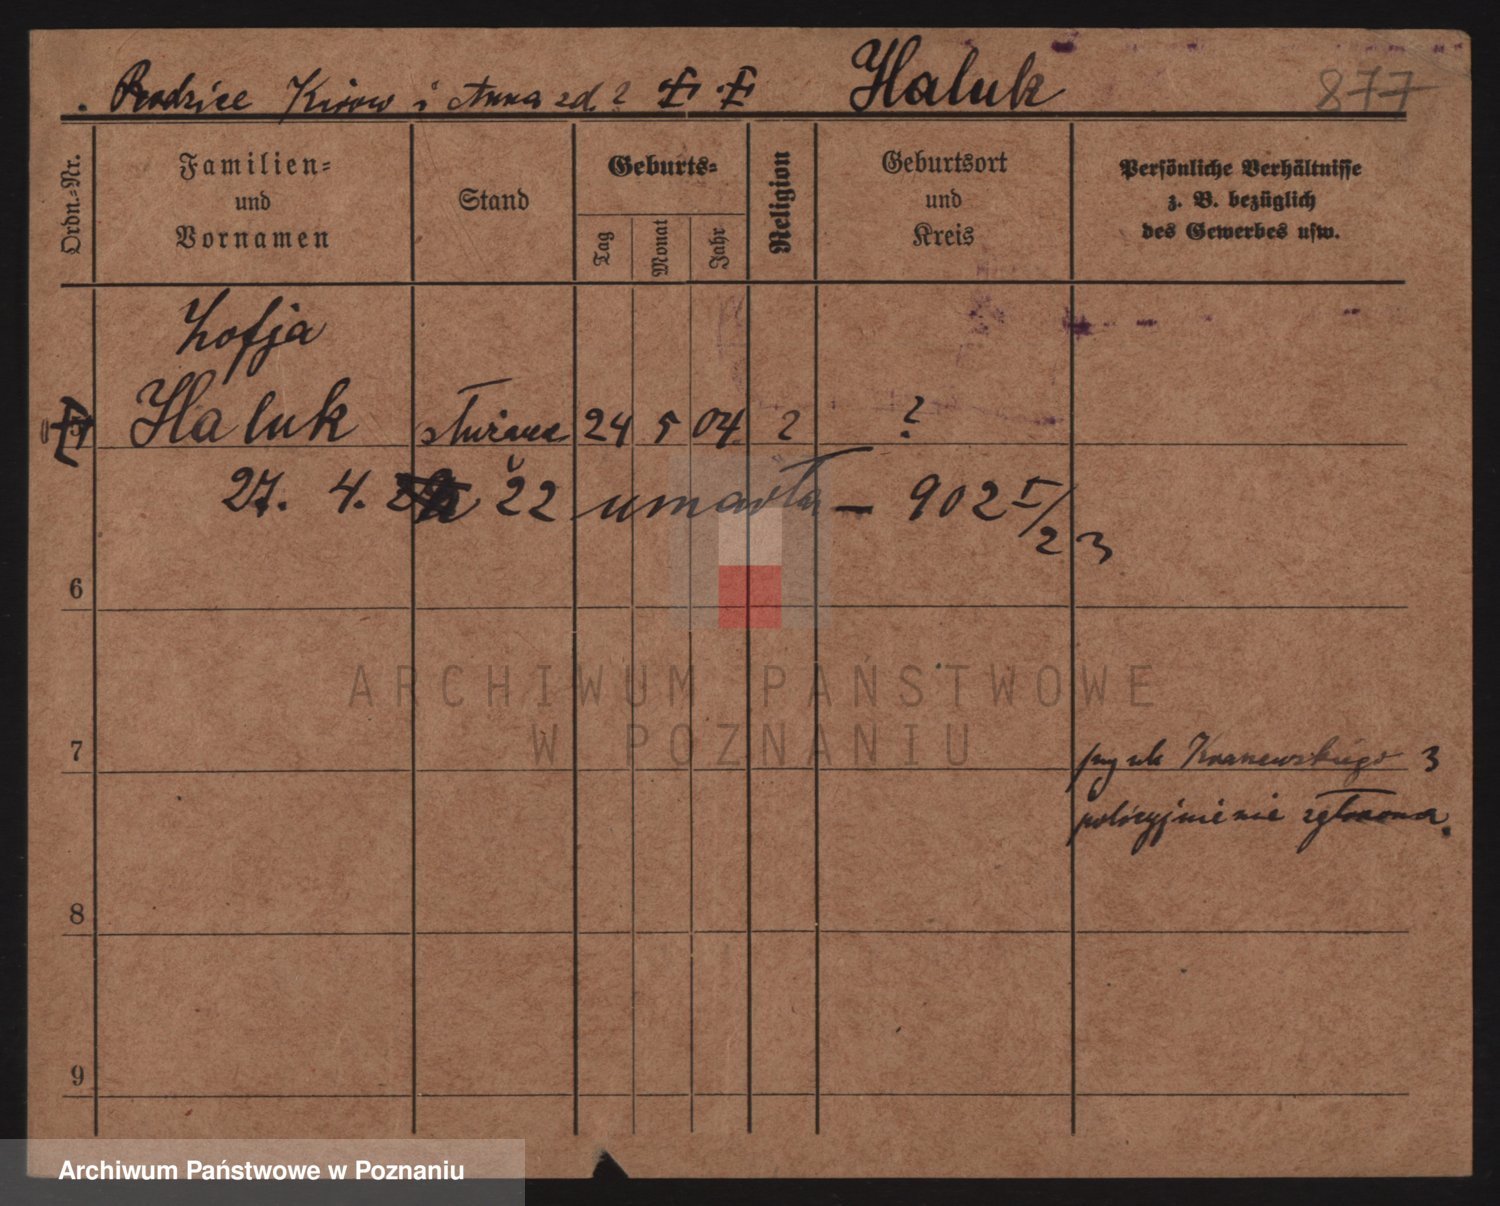 Rodzice i Anna zd. ? Haluk 877
Ordn.-Nr.
Familien-
und
Vornamen
Stand
Geburts-
Tag
Monat
Jahr
Religion
Geburtsort
und
Kreis
Persönliche Verhältnisse
z. B. bezüglich
des Gewerbes usw.
Zofja
Haluk 24 5 04 ? ?
27. 4. 22 umarła – 902 I/23
6
7
przy ul. 3
policyjnie nie zgłoszona.
8
9
ARCHIWUM PAŃSTWOWE
W POZNANIU
Archiwum Państwowe w Poznaniu